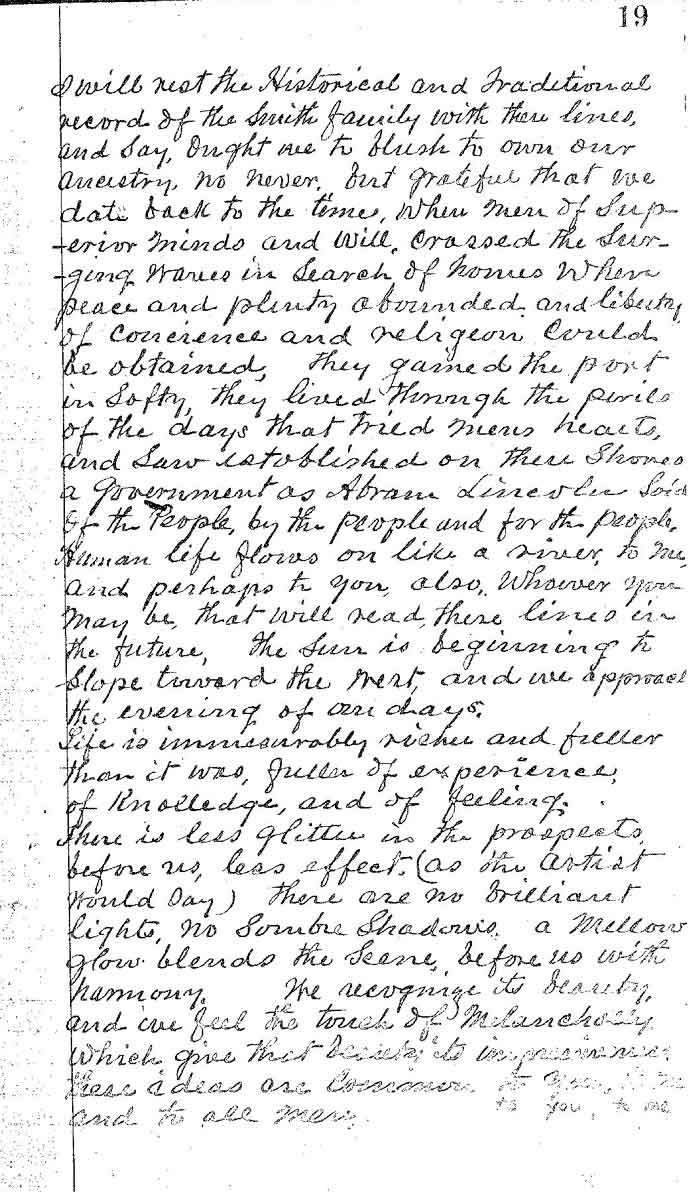 19
I will rest the Historical and Traditional
record of the Smith family with these lines,
and Say, Ought we to blush to own our
Ancestry, no never, but grateful that we
date back to the times, When Men of Sup-
-erior Minds and Will, Crossed the Sur-
-ging Waves in Search of homes Where
peace and plenty abounded and liberty
of Concience and religeon Could
be obtained, they gained the port
in Safty, they lived through the perils
of the days that tried mens hearts,
and Saw established on these Shores
a Government as Abram Lincoln Said
Of the People, by the people and for the people.
Human life flows on like a river, to me,
and perhaps to you, also, Whoever you
May be, that will read, these lines in
the future, the Sun is beginning to
Slope toward the West, and we approach
the evening of our days.
Life is immesurably richer and fuller
than it was, fuller of experience,
of Knolledge, and of feeling.
There is less glitter in the prospects
before us, less effect. (as the Artist
Would Say) there are no brilliant
lights, no Sombre Shadows, a Mellow
glow blends the Scene, before us with
harmony. We recognize its beauty,
and we feel the touch of Melancholy
Which give that beauty its impressiveness
these ideas are Common to You, to me
and to all Men. to You, to me